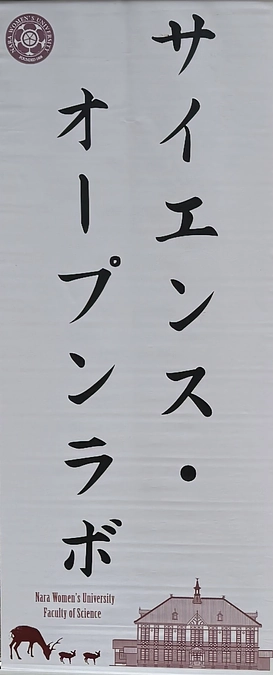 NARA WOMEN'S UNIVERSITY
FOUNDED 1908
サイエンス・
オープンラボ
Nara Women's University
Faculty of Science